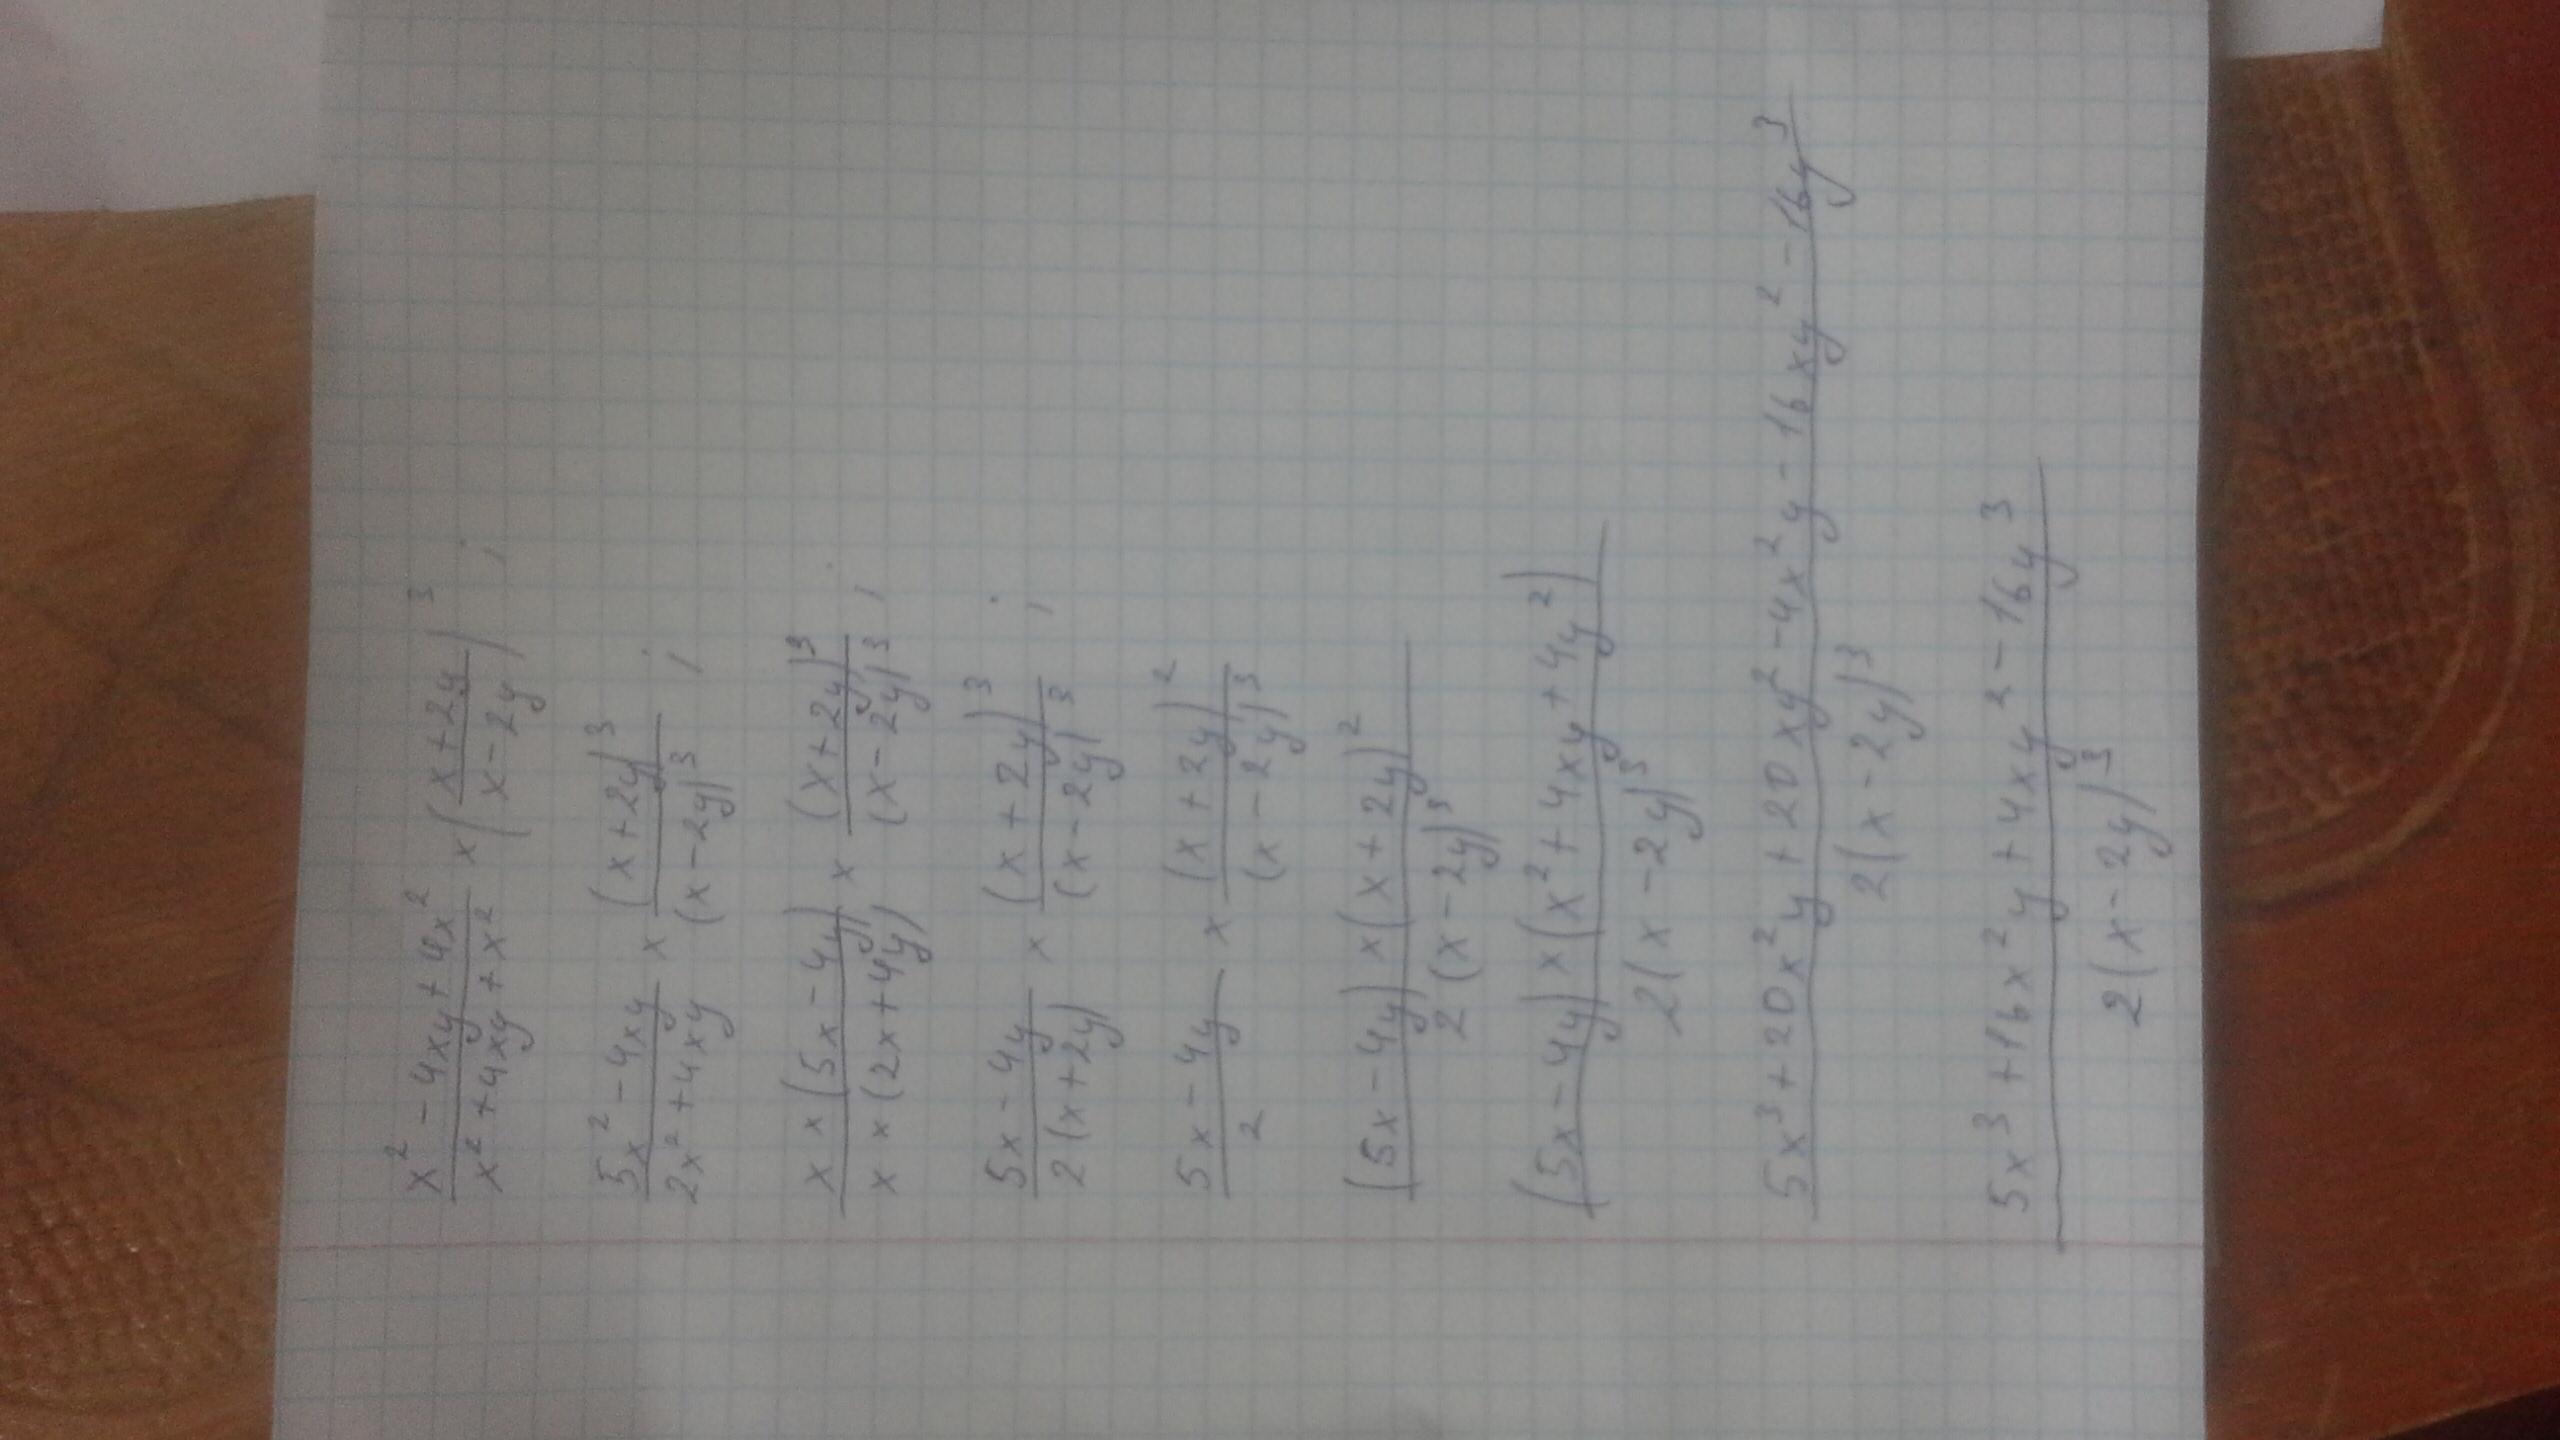 x² - 4xy + 4x² / x² + 4xy + x² × (x + 2y / x - 2y)³ ;
5x² - 4xy / 2x² + 4xy × (x + 2y)³ / (x - 2y)³ ;
x × (5x - 4y) / x × (2x + 4y) × (x + 2y)³ / (x - 2y)³ ;
5x - 4y / 2(x + 2y) × (x + 2y)³ / (x - 2y)³ ;
5x - 4y / 2 × (x + 2y)² / (x - 2y)³
(5x - 4y) × (x + 2y)² / 2(x - 2y)³
(5x - 4y) × (x² + 4xy + 4y²) / 2(x - 2y)³
5x³ + 20x²y + 20xy² - 4x²y - 16xy² - 16y³ / 2(x - 2y)³
5x³ + 16x²y + 4xy² - 16y³ / 2(x - 2y)³